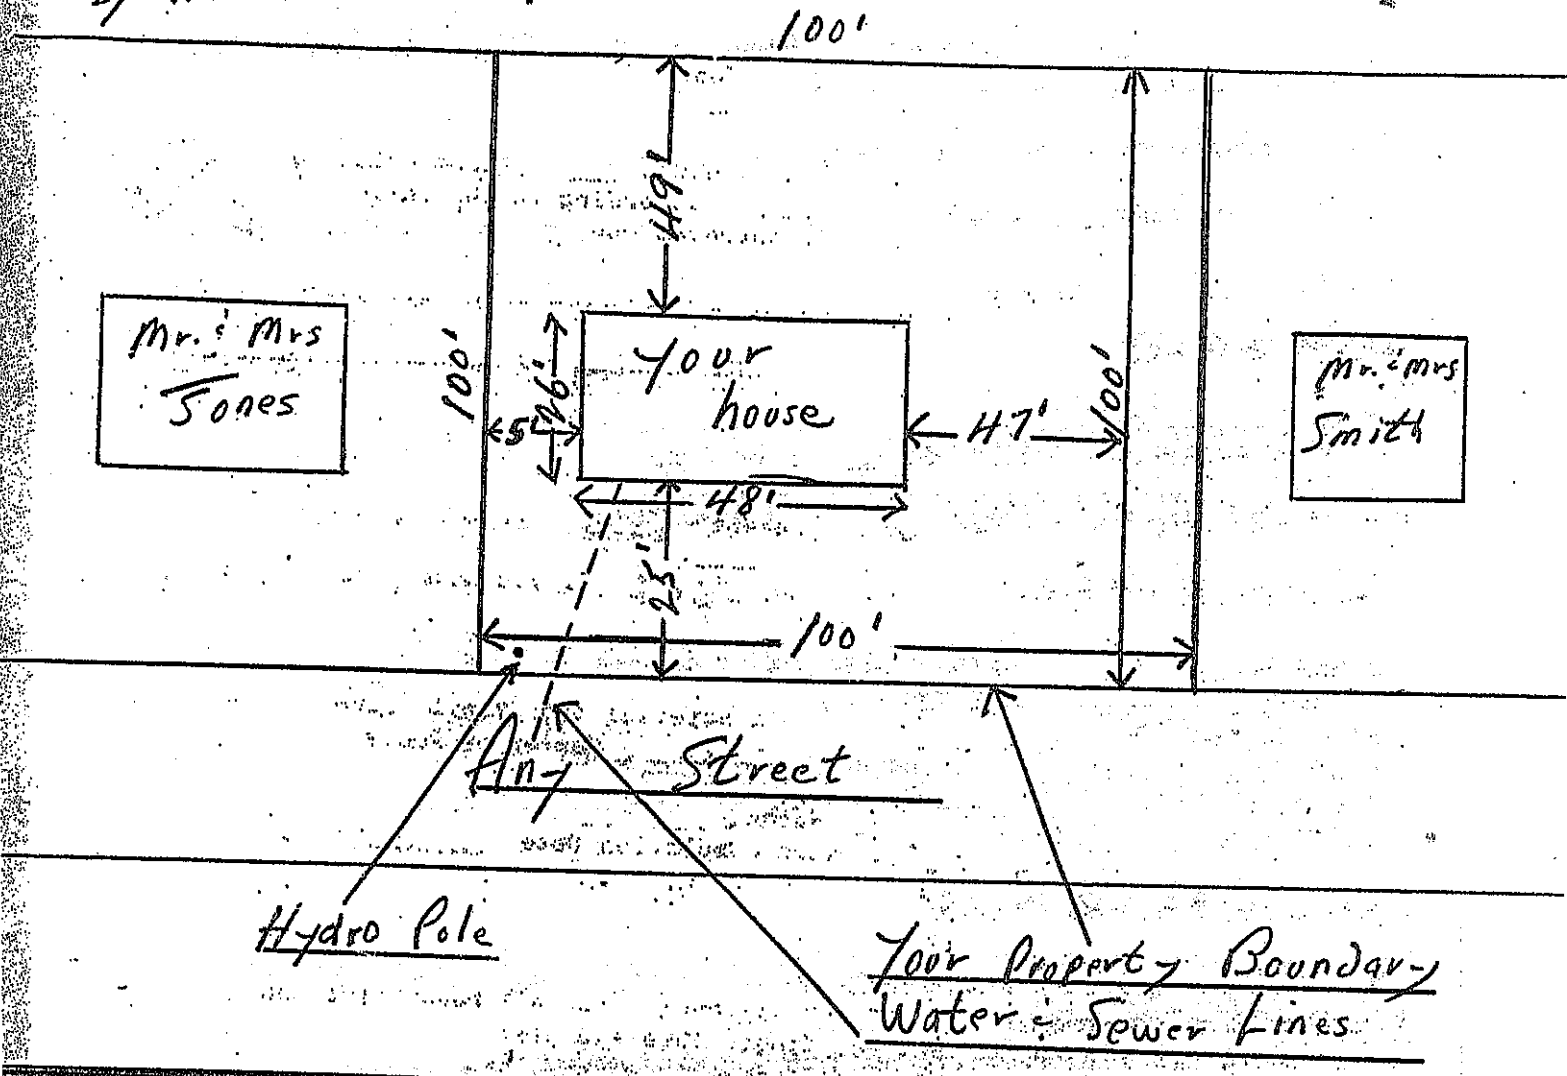 100'
49'
Mr. & Mrs
Jones
100'
5'
26'
Your
house
47'
100'
Mr. & Mrs
Smith
48'
25'
100'
Any Street
Hydro Pole
Your Property Boundary
Water & Sewer Lines